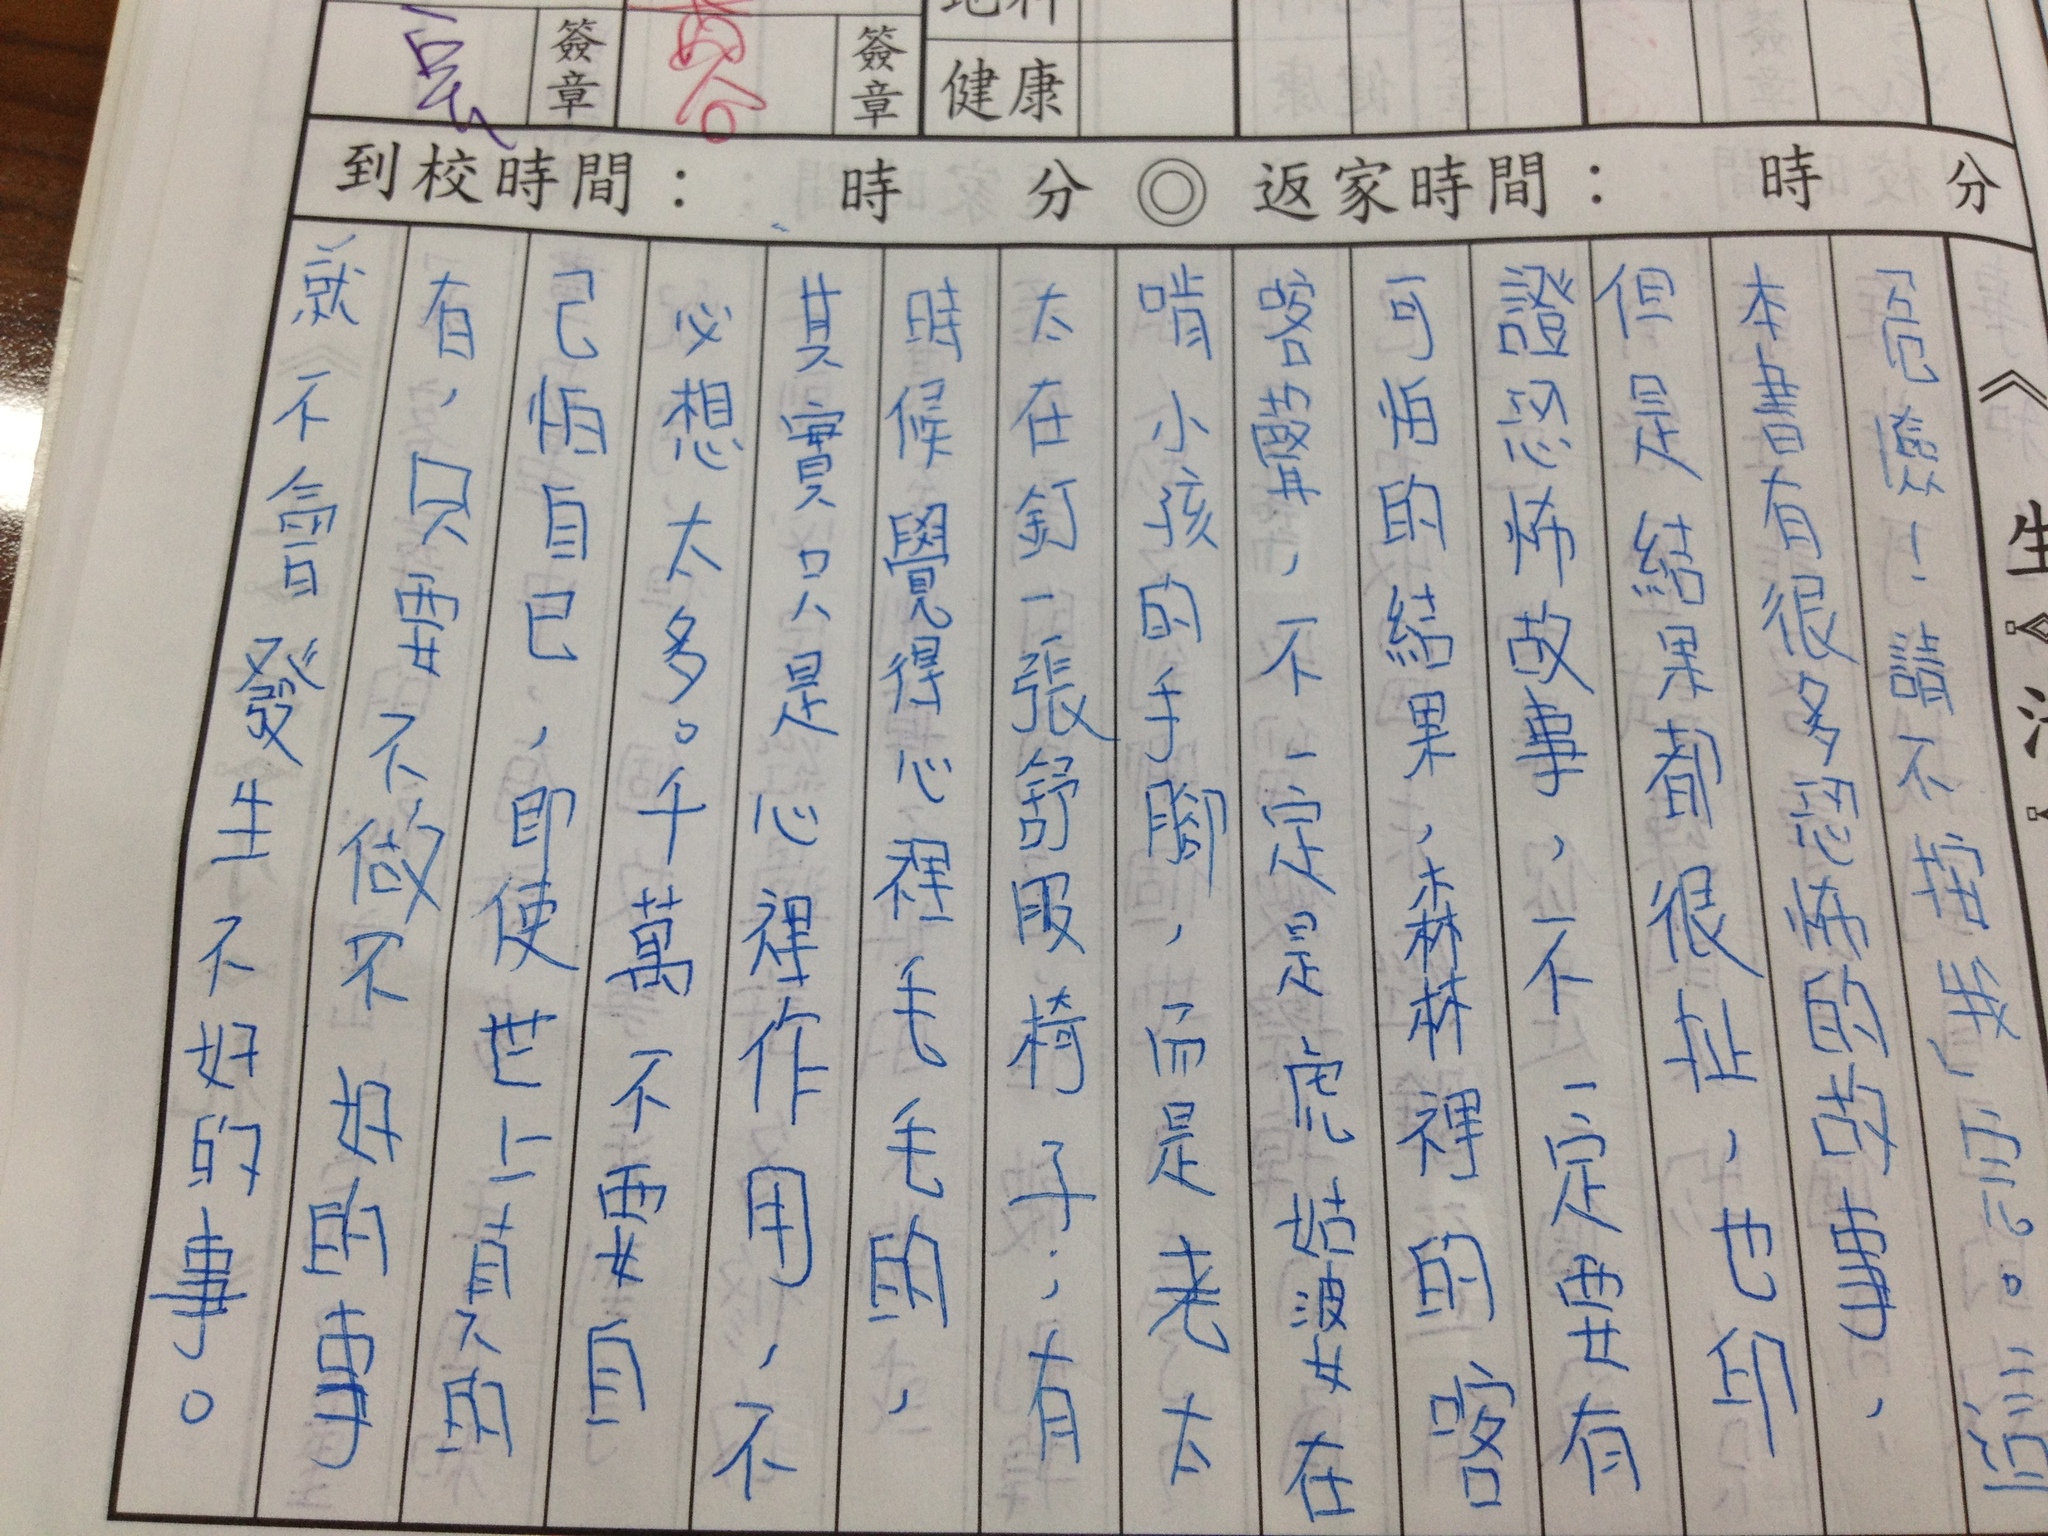 簽章
簽章
健康
到校時間： 時 分 ◎ 返家時間： 時 分
《生活
「危險！請不按我」而已。這
本書有很多恐怖的故事，
但是結果都很扯，也印
證恐怖故事，不一定要有
可怕的結果，森林裡的喀
喀聲，不一定是虎姑婆在
啃小孩的手腳，而是老太
太在釘一張舒服椅子；有
時候覺得心裡毛毛的，
其實只是心裡作用，不
必想太多。千萬不要自
己怕自己，即使世上真的
有，只要不做不好的事
就不會發生不好的事。